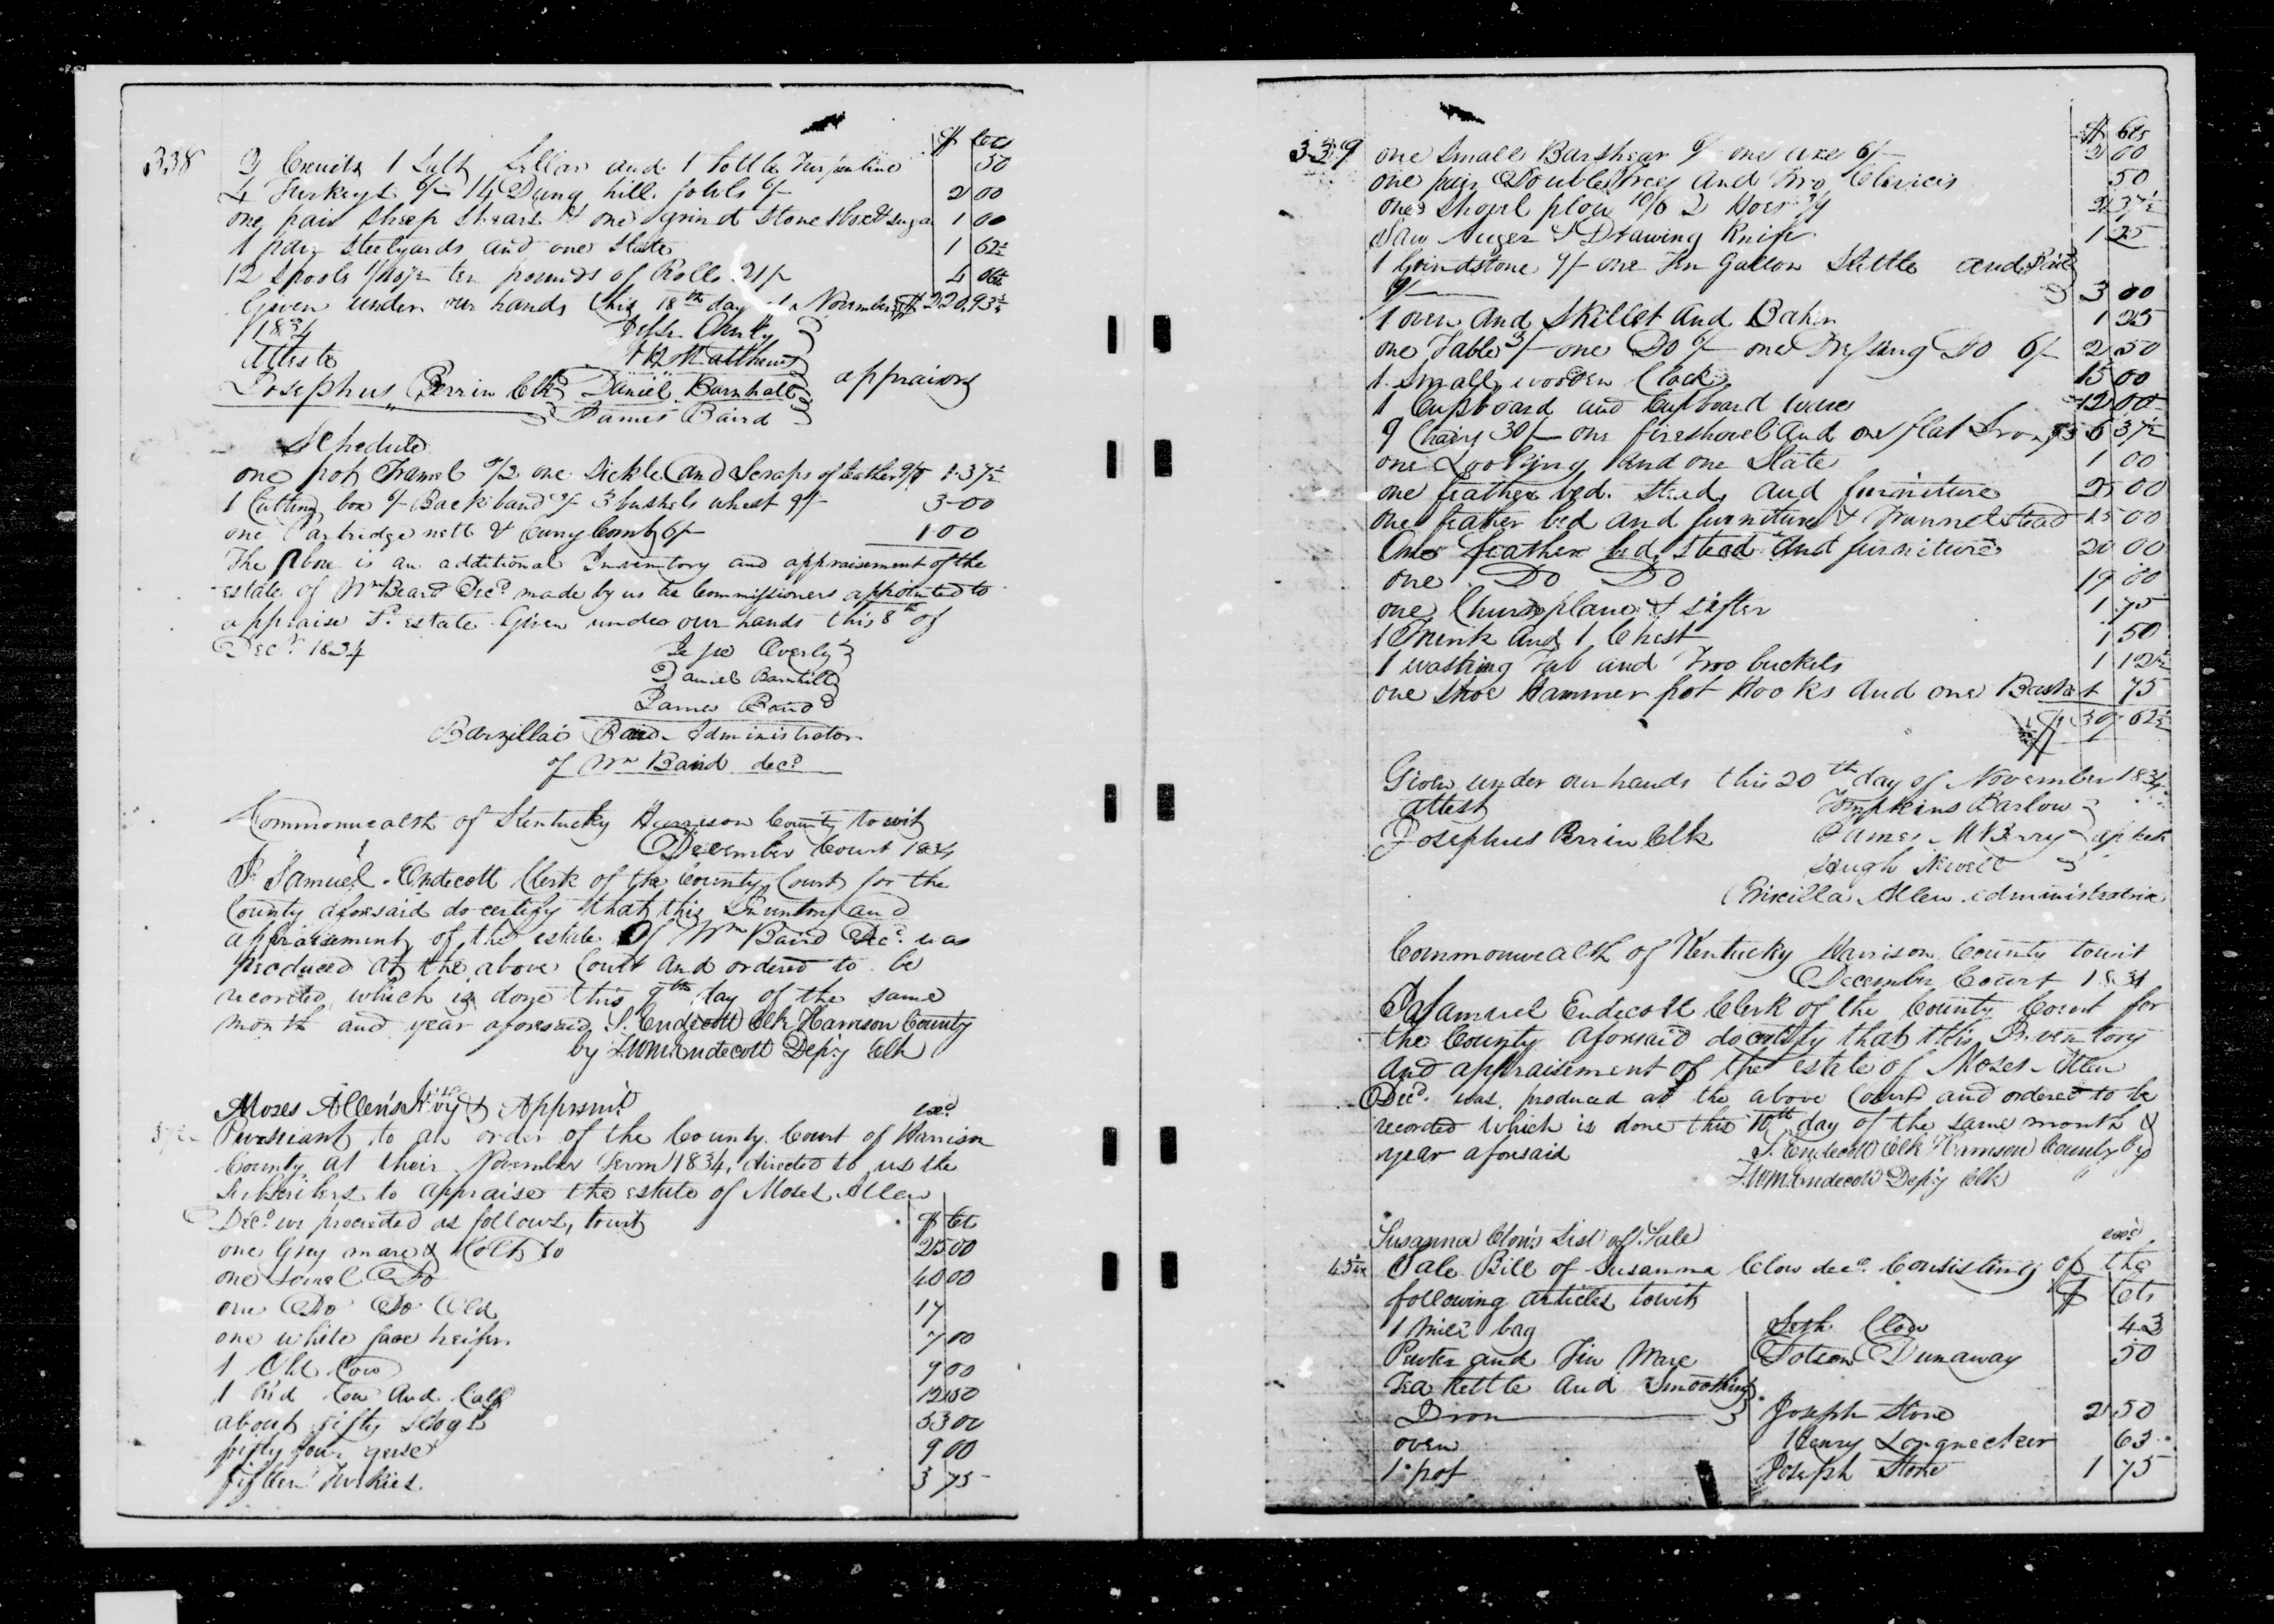 338
$ Cts
2 Cruits 1 Salt Sellar and 1 bottle Turpentine 50
4 Turkeys 6/- 14 Dung hill fowls 6/- 2 00
one pair Sheep Shears & one grind stone Box & sugar 1 00
1 pair steelyards and one Slate 1 62½
12 Spools ten pounds of Rolls 21/- 4
Given under our hands this 18th day November $220.93¾
1834
Atteste
H R Matthews
Josephus Perrin Clk Daniel Barnhill appraiors
James Baird
Schedule
one pot Tramel one Sickle and Scraps of leather 1.37½
1 Cutting box 6/- Back band 3/- 3 bushels wheat 9/- 3-00
one Partridge nett & Curry Comb 6/- 1.00
The Above is an additional Inventory and appraisement of the
estate of Wm Beard Decd made by us as Commissioners appointed to
appraise Sd estate Given under our hands this 8th of
Decr 1834
Jesse Overly
Daniel Barnhill
James Baird
Barzillai Baird Administrator
of Wm Baird decd
Commonwealth of Kentucky Harrison County towit
December Court 1834
I Samuel Endecott Clerk of the County Court for the
County aforesaid do certify that this Inventory and
appraisement of the estate Of Wm Baird Decd was
produced at the above Court and ordered to be
recorded which is done this 9th day of the same
month and year aforesaid S. Endecott Clk Harrison County
by Endecott Depy Clk
Moses Allen's Invy & Apprsmt exd
Purshiant to an order of the County Court of Harrison
County at their November Term 1834, directed to us the
Subscribers to appraise the estate of Moses Allen
Decd we proceeded as follows, towit $ Cts
one Grey mare & Colts to 25 00
one Sorrel Do 40 00
one Do Do Old 17
one white face heifer 7 00
1 Old Cow 9 00
1 Red Cow And Calf 12 50
about fifty Hogs 53 00
fifty four geese 9 00
fifteen Turkies 3 75
339
$ Cts
one Small Barshear 6/- one axe 6/- 2 00
one pair Doubletrees And Two Clevices 50
one Shovel plow 10/6 2 Hoes 3/9 2 37½
Saw Auger & Drawing Knife 1 25
1 Grindstone 9/- one Ten Gallon Kettle and Pail
9/- 3 00
1 oven And Skillet And Baker 1 25
one Table 3/- one Do 6/- one Dressing Do 6/- 2 50
1 Small wooden Clock 15 00
1 Cupboard and Cupboard ware 12 00
9 Chairs 30/- one fireshovel And one flat Iron 5 37½
one Looking and one Slate 1 00
one feather bed Stead and furniture 25 00
one feather bed and furniture & Trunnel Stead 15 00
One feather bed Stead And furniture 20 00
one Do Do 19 00
one Churn plane & sifter 1 75
1 Trunk And 1 Chest 1 50
1 washing Tub and Two buckets 1 12½
one Shoe Hammer pot Hooks And one Basket 75
Given under our hands this 20th day of November 1834
attest Tompkins Barlow
Josephus Perrin Clk James McBerry
Hugh Newell
Priscilla Allen Administratrix
Commonwealth of Kentucky Harrison County towit
December Court 1834
I Samuel Endecott Clerk of the County Court for
the County aforesaid do certify that this Inventory
and appraisement of the estate of Moses Allen
Decd was produced at the above Court and ordered to be
recorded which is done this 10th day of the same month &
year aforesaid S. Endecott Clk Harrison County by
Endecott Depy Clk
Susanna Clow's List of Sale exd
Sale Bill of Susanna Clow decd Consisting of the
following articles towit $ Cts
1 bag Seth Clow 43
Pewter and Tin Ware Dotson Dunaway 50
Tea Kettle And Smoothing
Iron Joseph Stone 2 50
oven Henry Longnecker 63
1 pot Joseph Stone 1 75